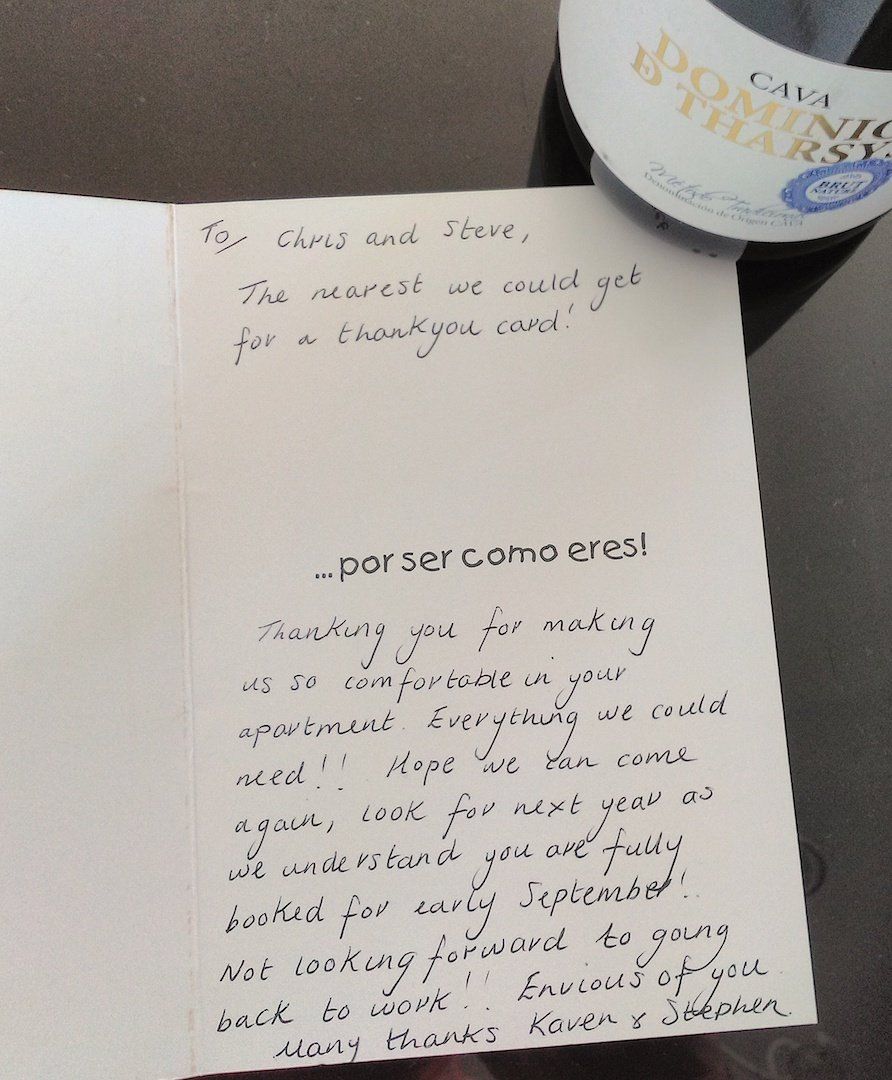 CAVA
DOMINIO
D THARSYS
BRUT
NATURE
Denominación de Origen CAVA
To/ Chris and Steve,
The nearest we could get
for a thankyou card!
...por ser como eres!
Thanking you for making
us so comfortable in your
apartment. Everything we could
need!! Hope we can come
again, look for next year as
we understand you are fully
booked for early September!
Not looking forward to going
back to work!! Envious of you
Many thanks Karen & Stephen.